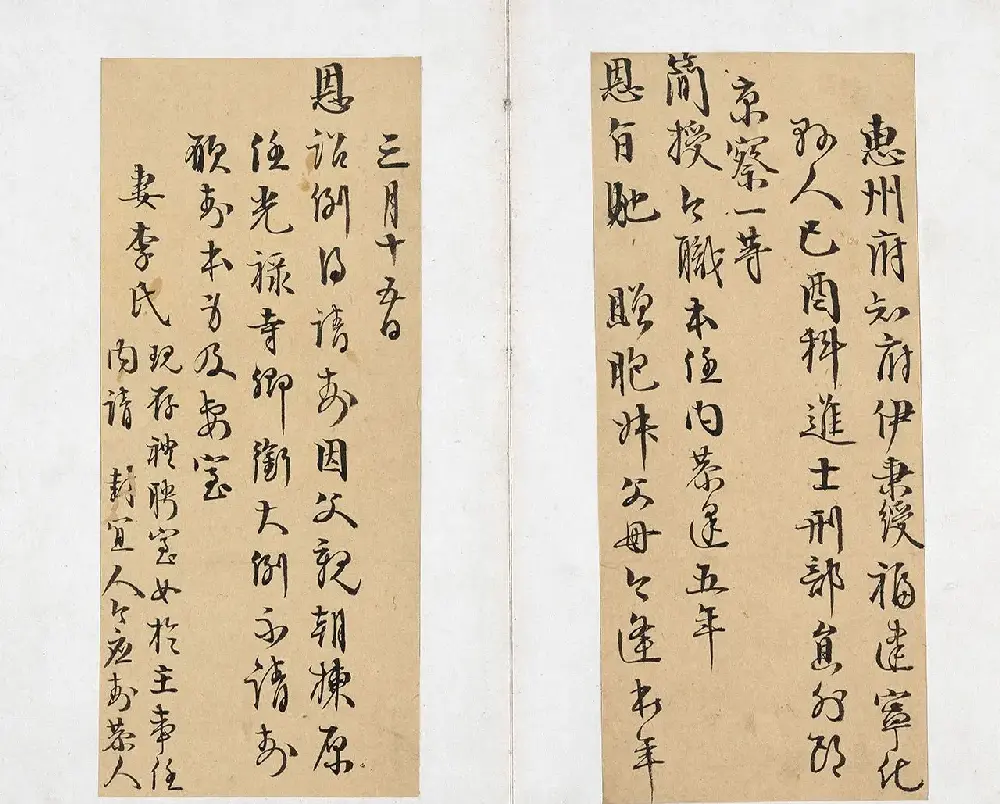 惠州府知府伊秉綬福建寧化
縣人己酉科進士刑部員外郎
京察一等
簡授今職本任內恭逢五年
恩旨貤贈胞妹父母今逢本年
三月十五日
恩詔例得請封因父親朝棟原
任光祿寺卿銜大例不請封
願封本身及妻室
妻李氏
現存禮聘室女於主事任
內請封宜人今應封恭人